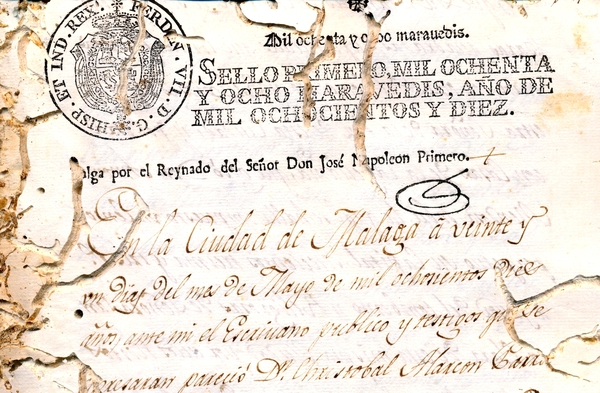 FERDIN. VII. D. G. HISP. ET IND. REX.
Mil ochenta y ocho maravedis.
SELLO PRIMERO, MIL OCHENTA
Y OCHO MARAVEDIS, AÑO DE
MIL OCHOCIENTOS Y DIEZ.
alga por el Reynado del Señor Don José Napoleon Primero.
En la Ciudad de Malaga à veinte y
un dias del mes de Mayo de mil ochocientos diez
años ante mi el Escrivano publico y testigos que se
expresaran pareciò Dn. Christobal Alarcon